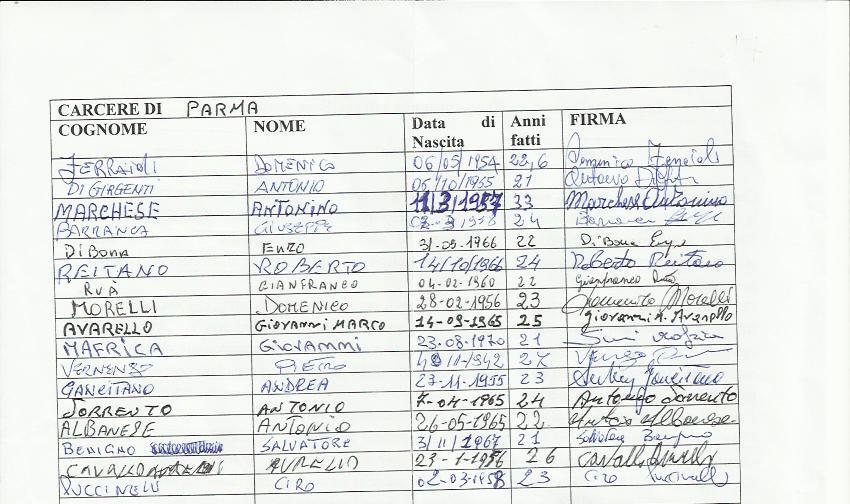 CARCERE DI PARMA
COGNOME NOME Data di Nascita Anni fatti FIRMA
FERRAIOLI DOMENICO 06/05/1954 22,6 Domenico Ferraioli
DI GIRGENTI ANTONIO 21
MARCHESE ANTONINO 11/3/1957 33 Marchese Antonino
BARRANCA GIUSEPPE 24 Barranca
Di Bona ENZO 31-09-1966 22 Di Bona Enzo
REITANO ROBERTO 14/10/1966 24 Roberto Reitano
RUÀ GIANFRANCO 04-02-1960 22 Gianfranco Ruà
MORELLI DOMENICO 28-02-1956 23 Domenico Morelli
AVARELLO GIOVANNI MARCO 14-09-1965 25 Giovanni M. Avarello
MAFRICA GIOVANNI 23-08-1970 21
VERNENGO PIETRO 27
GANCITANO ANDREA 27-11-1955 23 Andrea Gancitano
SORRENTO ANTONIO 7-04-1965 24 Antonio Sorrento
ALBANESE ANTONIO 26-05-1965 22 Antonio Albanese
BENIGNO SALVATORE 3/11/1967 21 Salvatore Benigno
AURELIO 23-1-1956 26
PUCCINELLI CIRO 02-03-1958 23 Ciro Puccinelli